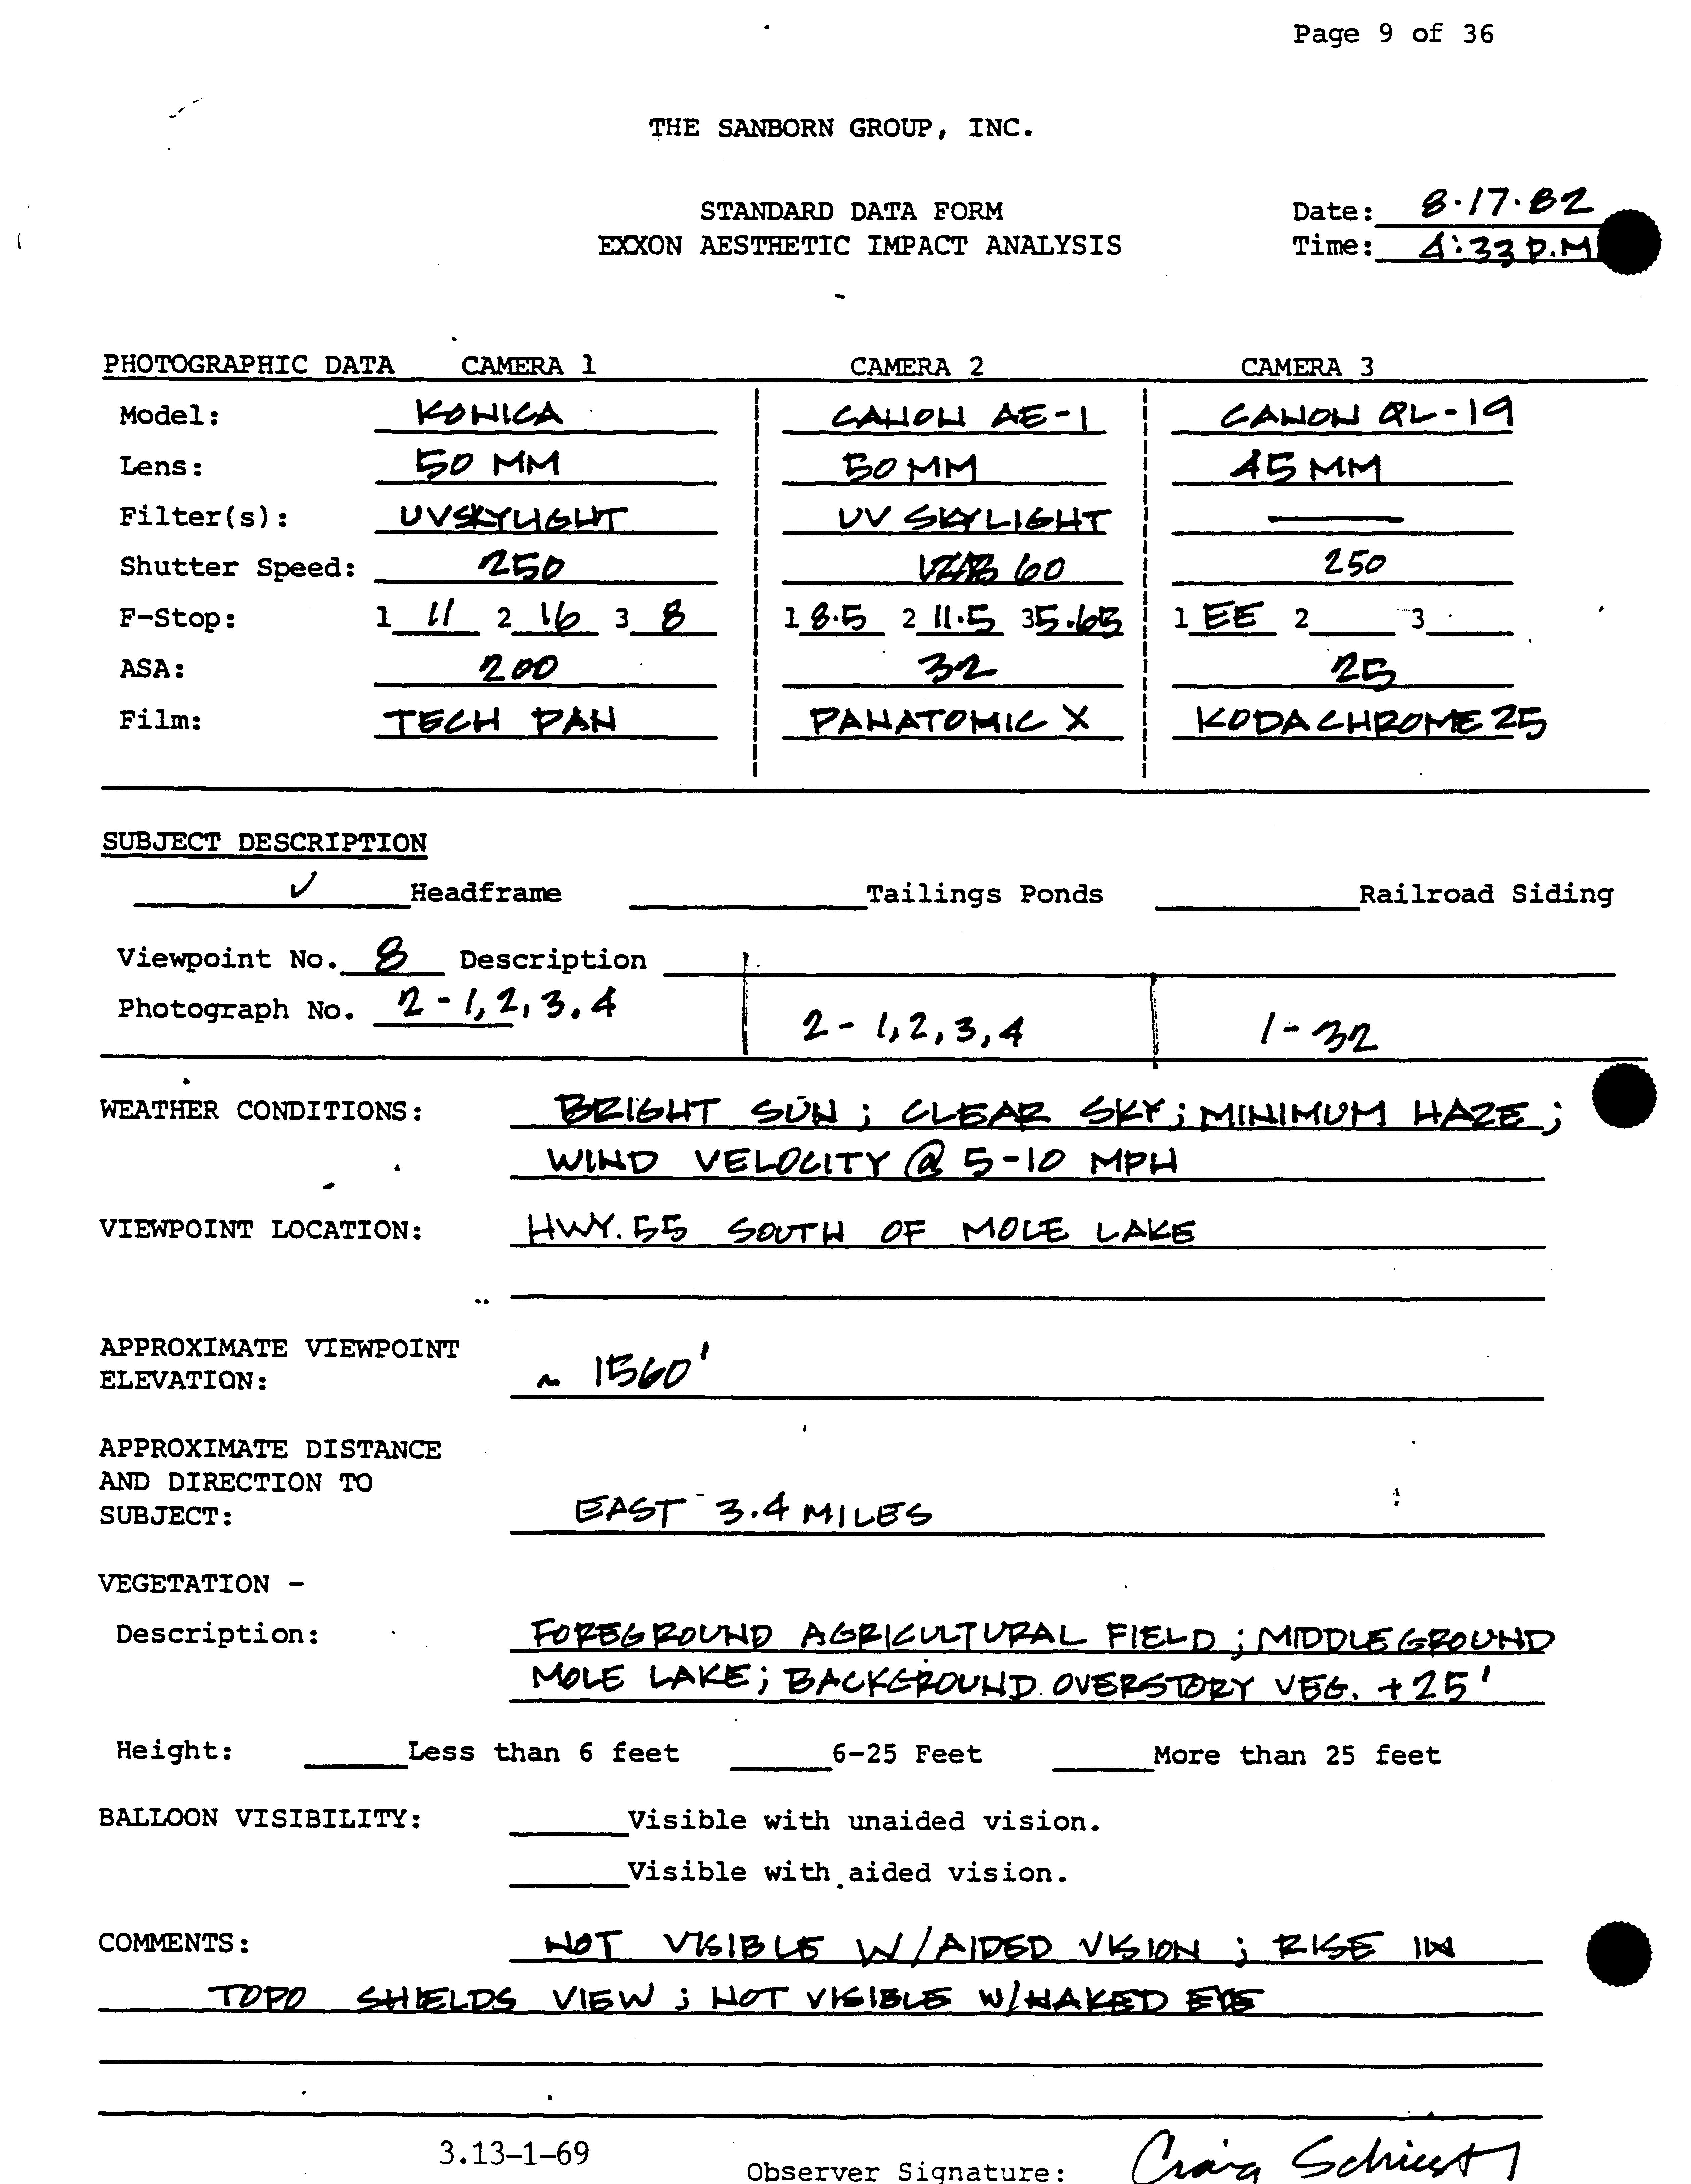 Page 9 of 36
THE SANBORN GROUP, INC.
STANDARD DATA FORM
EXXON AESTHETIC IMPACT ANALYSIS
Date: 8·17·82
Time: 4:33 P.M
PHOTOGRAPHIC DATA CAMERA 1 CAMERA 2 CAMERA 3
Model: KONICA CANON AE-1 CANON QL-19
Lens: 50 MM 50 MM 45 MM
Filter(s): UV SKYLIGHT UV SKYLIGHT —
Shutter Speed: 250 60 250
F-Stop: 1 11 2 16 3 8 1 8.5 2 11.5 3 5.65 1 EE 2 3
ASA: 200 32 25
Film: TECH PAN PANATOMIC X KODACHROME 25
SUBJECT DESCRIPTION
✓ Headframe Tailings Ponds Railroad Siding
Viewpoint No. 8 Description
Photograph No. 2 - 1, 2, 3, 4 2 - 1, 2, 3, 4 1 - 32
WEATHER CONDITIONS: BRIGHT SUN ; CLEAR SKY; MINIMUM HAZE ;
WIND VELOCITY @ 5-10 MPH
VIEWPOINT LOCATION: HWY. 55 SOUTH OF MOLE LAKE
APPROXIMATE VIEWPOINT
ELEVATION: ~ 1560'
APPROXIMATE DISTANCE
AND DIRECTION TO
SUBJECT: EAST - 3.4 MILES
VEGETATION -
Description: FOREGROUND AGRICULTURAL FIELD ; MIDDLEGROUND
MOLE LAKE; BACKGROUND OVERSTORY VEG. +25'
Height: Less than 6 feet 6-25 Feet More than 25 feet
BALLOON VISIBILITY: Visible with unaided vision.
Visible with aided vision.
COMMENTS: NOT VISIBLE W/AIDED VISION ; RISE IN
TOPO SHIELDS VIEW ; NOT VISIBLE W/NAKED EYE
3.13-1-69
Observer Signature: Craig